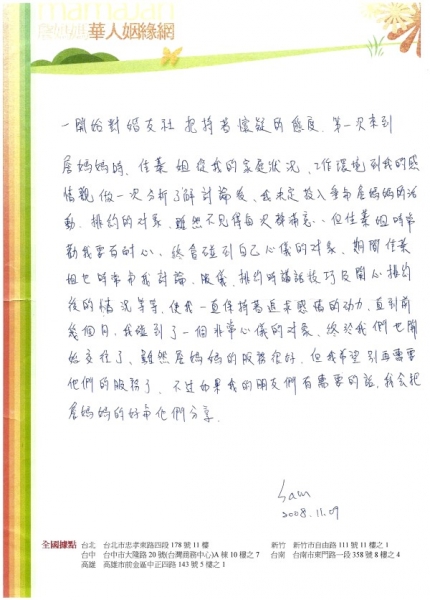 mamajan
詹媽媽華人姻緣網
一開始對婚友社抱持著懷疑的態度,第一次來到
詹媽媽時,佳蓁姐從我的家庭狀況、工作環境到我的感
情觀做一次分析了解討論後,我決定投入參與詹媽媽的活
動,排約的対象,雖然不見得每次都滿意、但佳蓁姐時常
勸我要有耐心、終會碰到自己心儀的对象、期間佳蓁
姐也時常與我討論、服儀、排約時講話技巧及關心排約
後的情況等等,使我一直保持著追求感情的動力,直到前
幾個月,我碰到了一個非常心儀的对象、終於我們也開
始交往了、雖然詹媽媽的服務很好,但我希望別再需要
他們的服務了、不过如果我的朋友們有需要的話,我會把
詹媽媽的好与他們分享.
Sam
2008.11.09
全國據點 台北 台北市忠孝東路四段178號11樓 新竹 新竹市自由路111號11樓之1
台中 台中市大隆路20號(台灣商務中心)A棟10樓之7 台南 台南市東門路一段358號8樓之4
高雄 高雄市前金區中正四路143號5樓之1